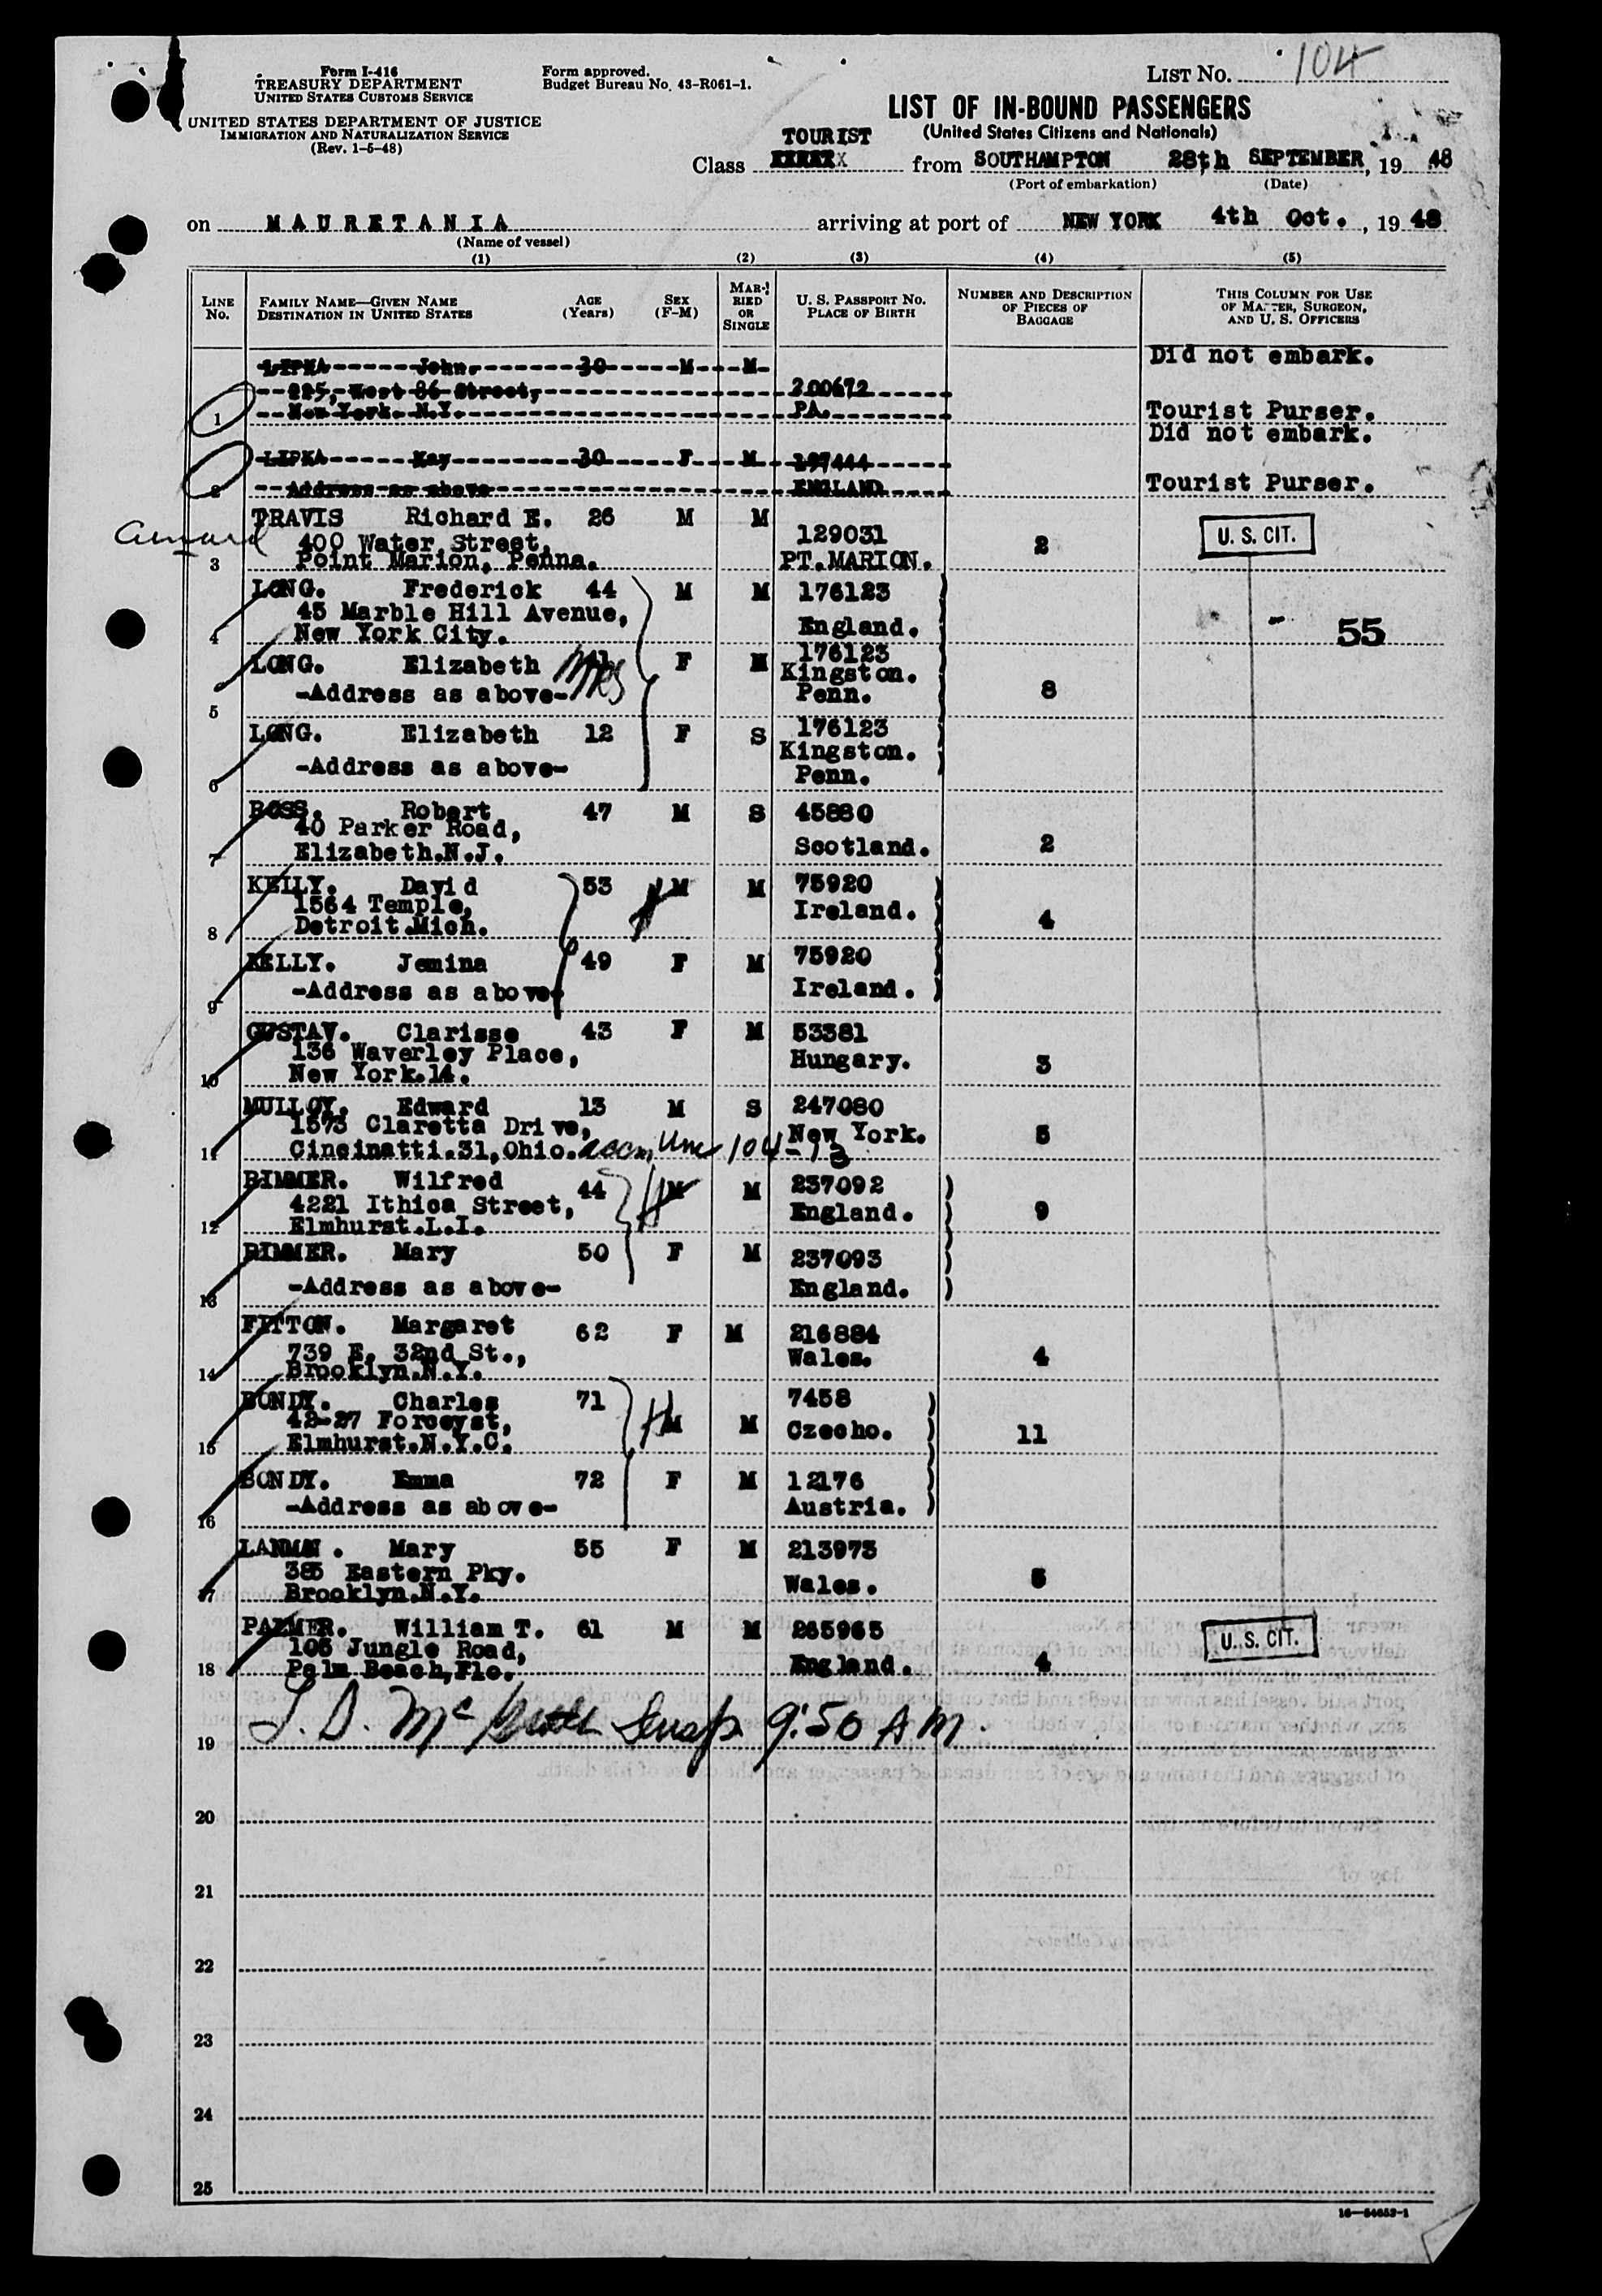 Form I-416
TREASURY DEPARTMENT
UNITED STATES CUSTOMS SERVICE
UNITED STATES DEPARTMENT OF JUSTICE
IMMIGRATION AND NATURALIZATION SERVICE
(Rev. 1-5-48)
Form approved.
Budget Bureau No. 43-R061-1.
LIST No. 104
LIST OF IN-BOUND PASSENGERS
(United States Citizens and Nationals)
TOURIST
Class XXXXXX from SOUTHAMPTON 28th SEPTEMBER, 19 48
(Port of embarkation) (Date)
on MAURETANIA arriving at port of NEW YORK 4th Oct., 19 48
(Name of vessel)
(1) (2) (3) (4) (5)
LINE No. FAMILY NAME—GIVEN NAME DESTINATION IN UNITED STATES AGE (Years) SEX (F-M) MARRIED OR SINGLE U. S. PASSPORT No. PLACE OF BIRTH NUMBER AND DESCRIPTION OF PIECES OF BAGGAGE THIS COLUMN FOR USE OF MASTER, SURGEON, AND U. S. OFFICERS
LIPKA John. 30 M M Did not embark.
225, West 86 Street, 200672
1 New York. N.Y. PA. Tourist Purser.
Did not embark.
LIPKA Kay 30 F M 197444
2 Address as above ENGLAND Tourist Purser.
TRAVIS Richard E. 26 M M
400 Water Street, 129031 2 U. S. CIT.
3 Point Marion, Penna. PT.MARION.
LONG. Frederick 44 M M 176123
45 Marble Hill Avenue,
4 New York City. England. 55
LONG. Elizabeth F M 176123
Kingston.
-Address as above- Penn. 8
5
LONG. Elizabeth 12 F S 176123
Kingston.
-Address as above- Penn.
6
ROSS. Robert 47 M S 45880
40 Parker Road,
7 Elizabeth.N.J. Scotland. 2
KELLY. David 53 M M 75920
1564 Temple, Ireland.
8 Detroit.Mich. 4
KELLY. Jemina 49 F M 75920
-Address as above- Ireland.
9
GUSTAV. Clarisse 43 F M 53381
136 Waverley Place, Hungary. 3
10 New York.14.
MULLOY. Edward 13 M S 247080
1573 Claretta Drive, New York. 5
11 Cincinatti.31,Ohio. 104-13
RIMMER. Wilfred 44 M M 237092
4221 Ithica Street, England. 9
12 Elmhurst.L.I.
RIMMER. Mary 50 F M 237093
-Address as above- England.
13
FITTON. Margaret 62 F M 216884
739 E. 32nd St., Wales. 4
14 Brooklyn.N.Y.
BONDY. Charles 71 M M 7458
42-27 Forceyst, Czecho. 11
15 Elmhurst.N.Y.C.
BONDY. Emma 72 F M 12176
-Address as above- Austria.
16
LANMAN. Mary 55 F M 213973
385 Eastern Pky. Wales. 5
17 Brooklyn.N.Y.
PALMER. William T. 61 M M 265965
105 Jungle Road, U. S. CIT.
18 Palm Beach,Flo. England. 4
19 9:50 AM.
20
21
22
23
24
25
16—54653-1